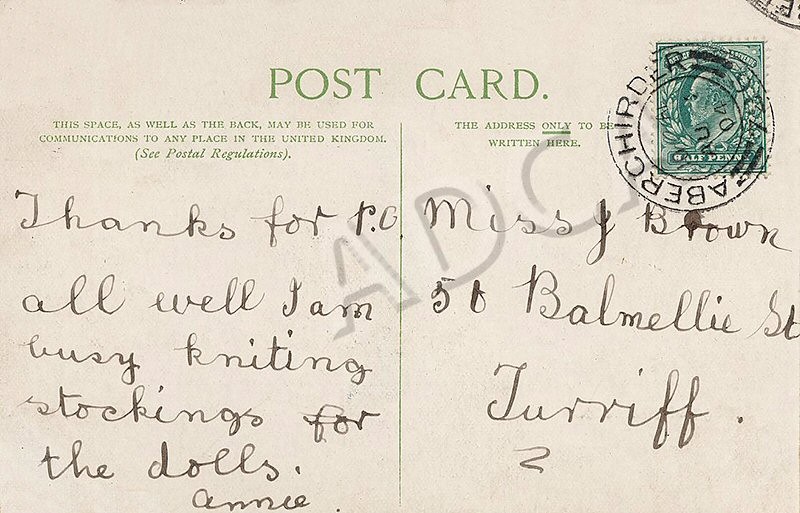 POST CARD.
THIS SPACE, AS WELL AS THE BACK, MAY BE USED FOR
COMMUNICATIONS TO ANY PLACE IN THE UNITED KINGDOM.
(See Postal Regulations).
Thanks for P.C
all well I am
busy kniting
stockings for
the dolls.
annie.
THE ADDRESS ONLY TO BE
WRITTEN HERE.
Miss J Brown
50 Balmellie St
Turriff.
ABERCHIRDER
04
HALF PENNY
ADC